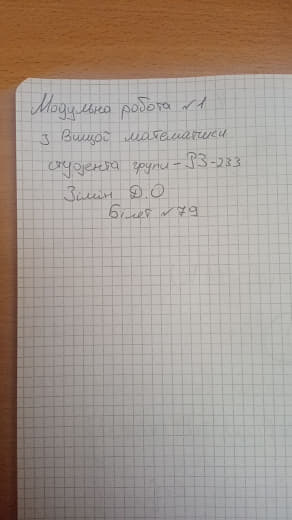 Модульна робота №1
з Вищої математики
студента групи - РЗ-233
Зімін Д.О
Білет №79